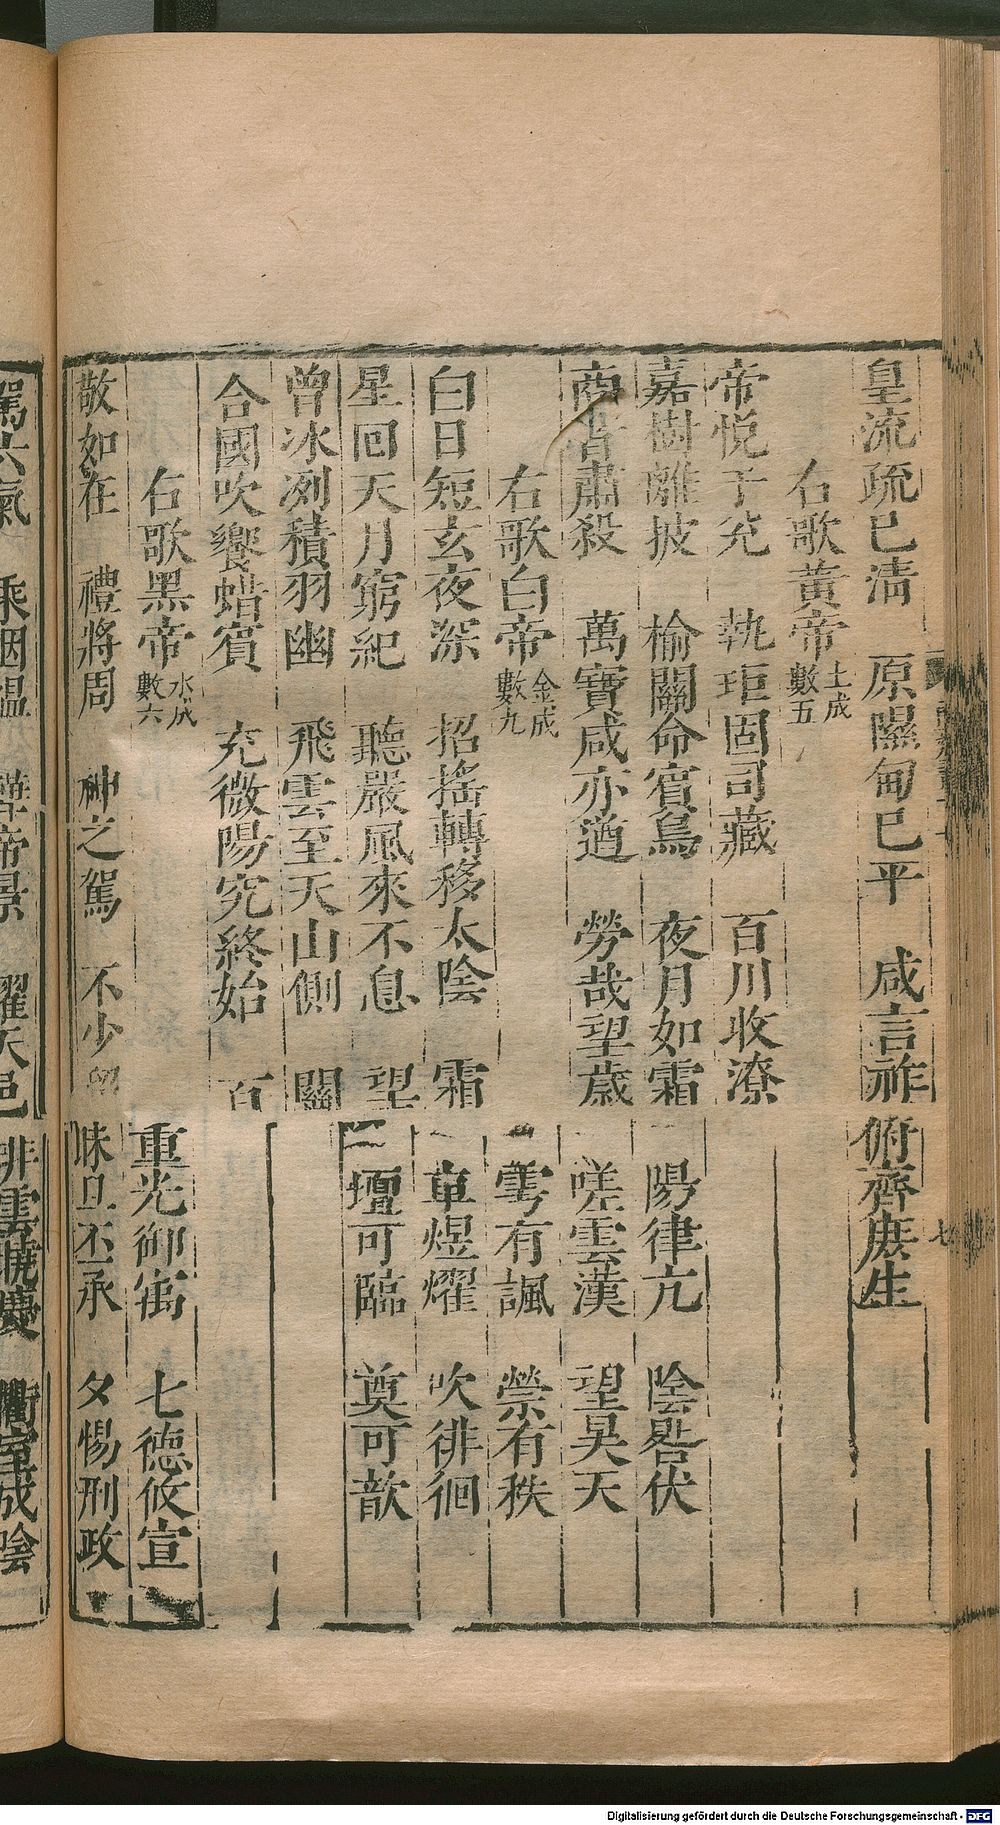 皇流疏已清　原隰甸已平　咸言祚俯齊庶生
右歌黃帝土成數五
帝悅于兌　執矩固司藏　百川收潦
嘉樹離披　榆關命賓鳥　夜月如霜　陽律亢　陰晷伏
商昔肅殺　萬寶咸亦遒　勞哉望歲　嗟雲漢　望昊天
右歌白帝金成數九　雩有諷　禜有秩
白日短玄夜深　招搖轉移太陰　霜　車煜燿　吹徘徊
星回天月窮紀　聽嚴風來不息　望　壇可臨　奠可歆
曾冰冽積羽幽　飛雲至天山側　關
合國吹饗蜡賓　充微陽究終始　百
右歌黑帝水成數六　重光御寓　七德攸宣
敬如在　禮將周　神之駕　不少留　昧旦丕承　夕惕刑政
駕六氣　乘烟熅　帝景　耀天邑　排雲　慶　衢室成陰
七
Digitalisierung gefördert durch die Deutsche Forschungsgemeinschaft - DFG